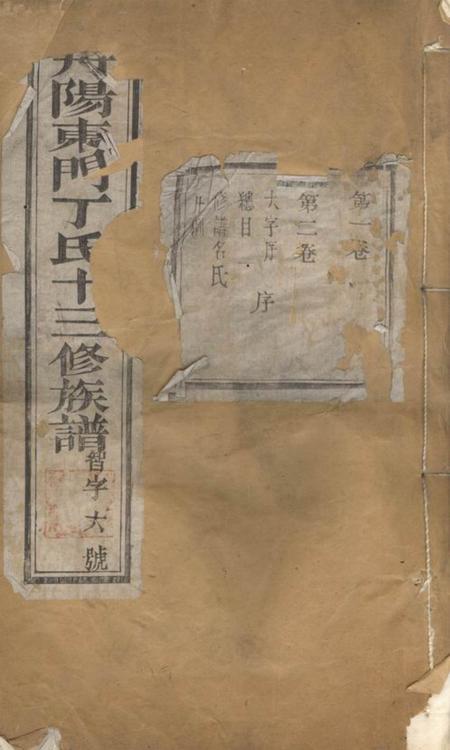 丹陽東門丁氏十三修族譜
智字大號
第一卷
第二卷
大字序 序
總目
修譜名氏
凡例